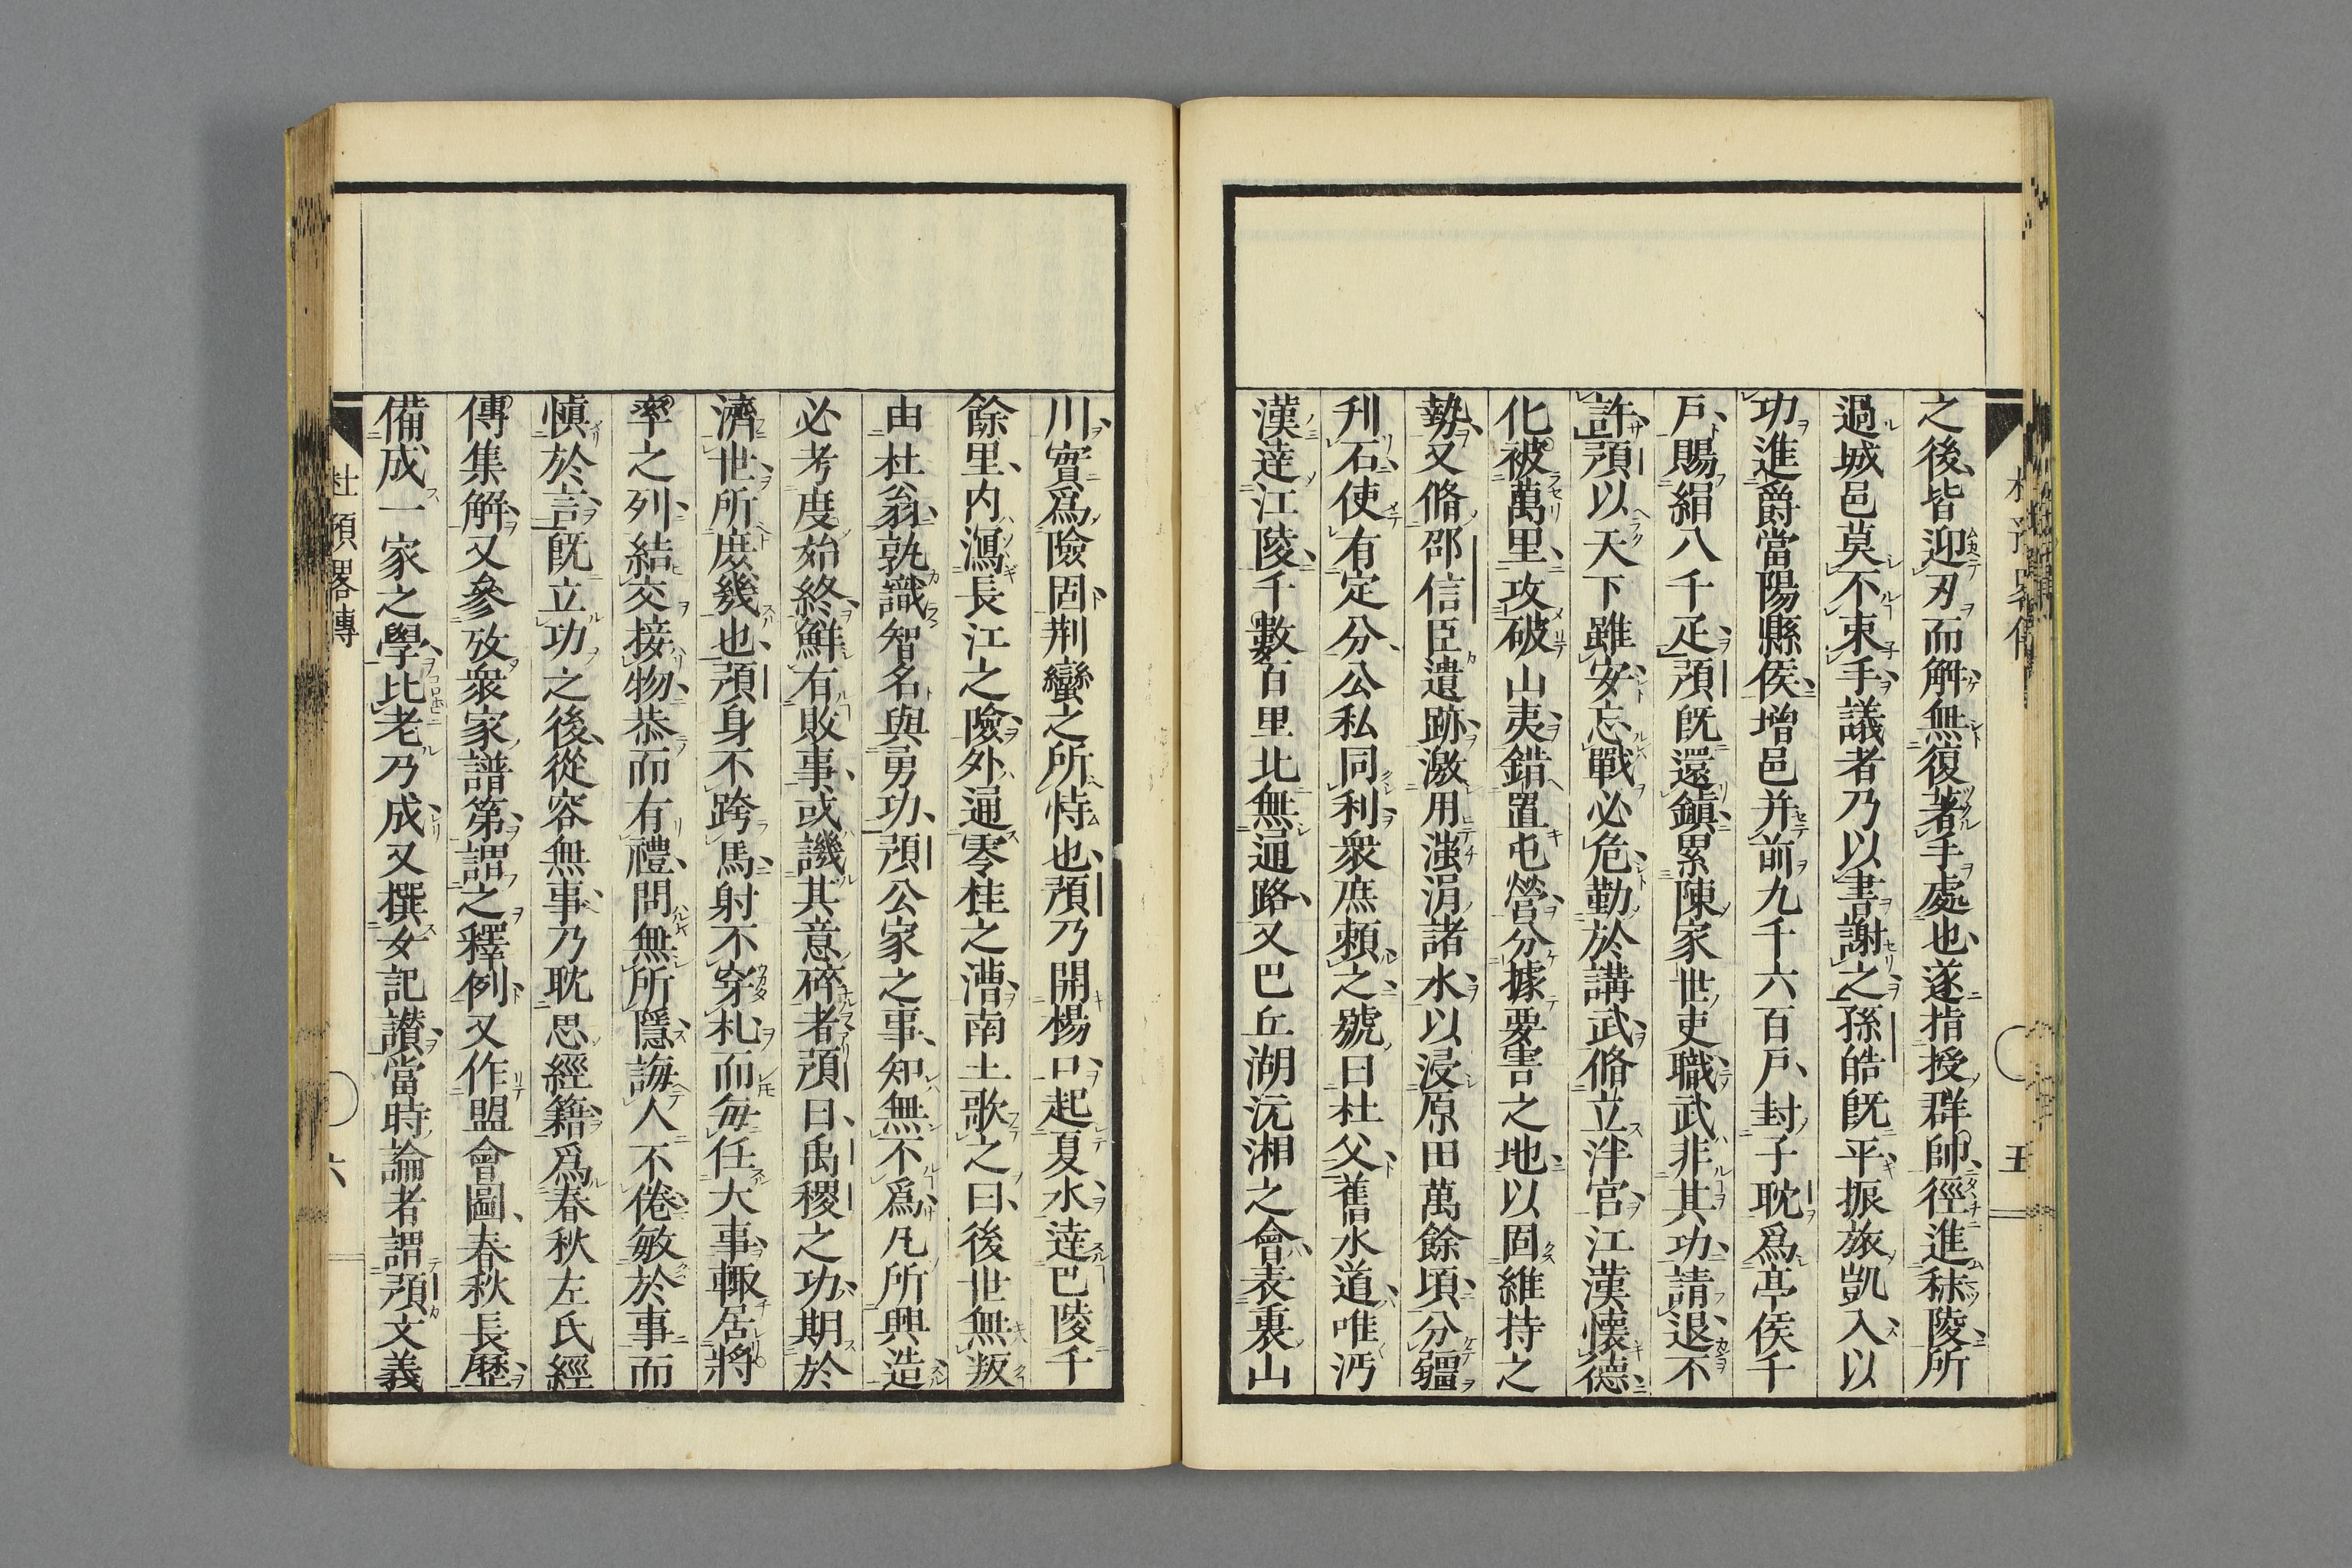 之後皆迎刃而解無復著手處也遂指授群帥徑進秣陵所
過城邑莫不束手議者乃以書謝之孫皓既平振旅凱入以
功進爵當陽縣侯增邑并前九千六百戸封子耽爲亭侯千
戸賜絹八千疋預既還鎮累陳家世吏職武非其功請退不
許預以天下雖安忘戰必危勤於講武脩立泮宮江漢懷德
化被萬里攻破山夷錯置屯營分據要害之地以固維持之
勢又脩邵信臣遺跡激用滍淯諸水以浸原田萬餘頃分疆
刋石使有定分公私同利衆庶頼之號曰杜父舊水道唯沔
漢達江陵千數百里北無通路又巴丘湖沅湘之會表裏山
川實爲險固荆蠻之所恃也預乃開楊口起夏水達巴陵千
餘里内瀉長江之險外通零桂之漕南土歌之曰後世無叛
由杜翁孰識智名與勇功預公家之事知無不爲凡所興造
必考度始終鮮有敗事或譏其意碎者預曰禹稷之功期於
濟世所庶幾也預身不跨馬射不穿札而毎任大事輙居將
率之列結交接物恭而有禮問無所隱誨人不倦敏於事而
愼於言既立功之後從容無事乃耽思經籍爲春秋左氏經
傳集解又參攷衆家譜第謂之釋例又作盟會圖春秋長歷
備成一家之學比老乃成又撰女記讃當時論者謂預文義
杜預畧傳
六
五